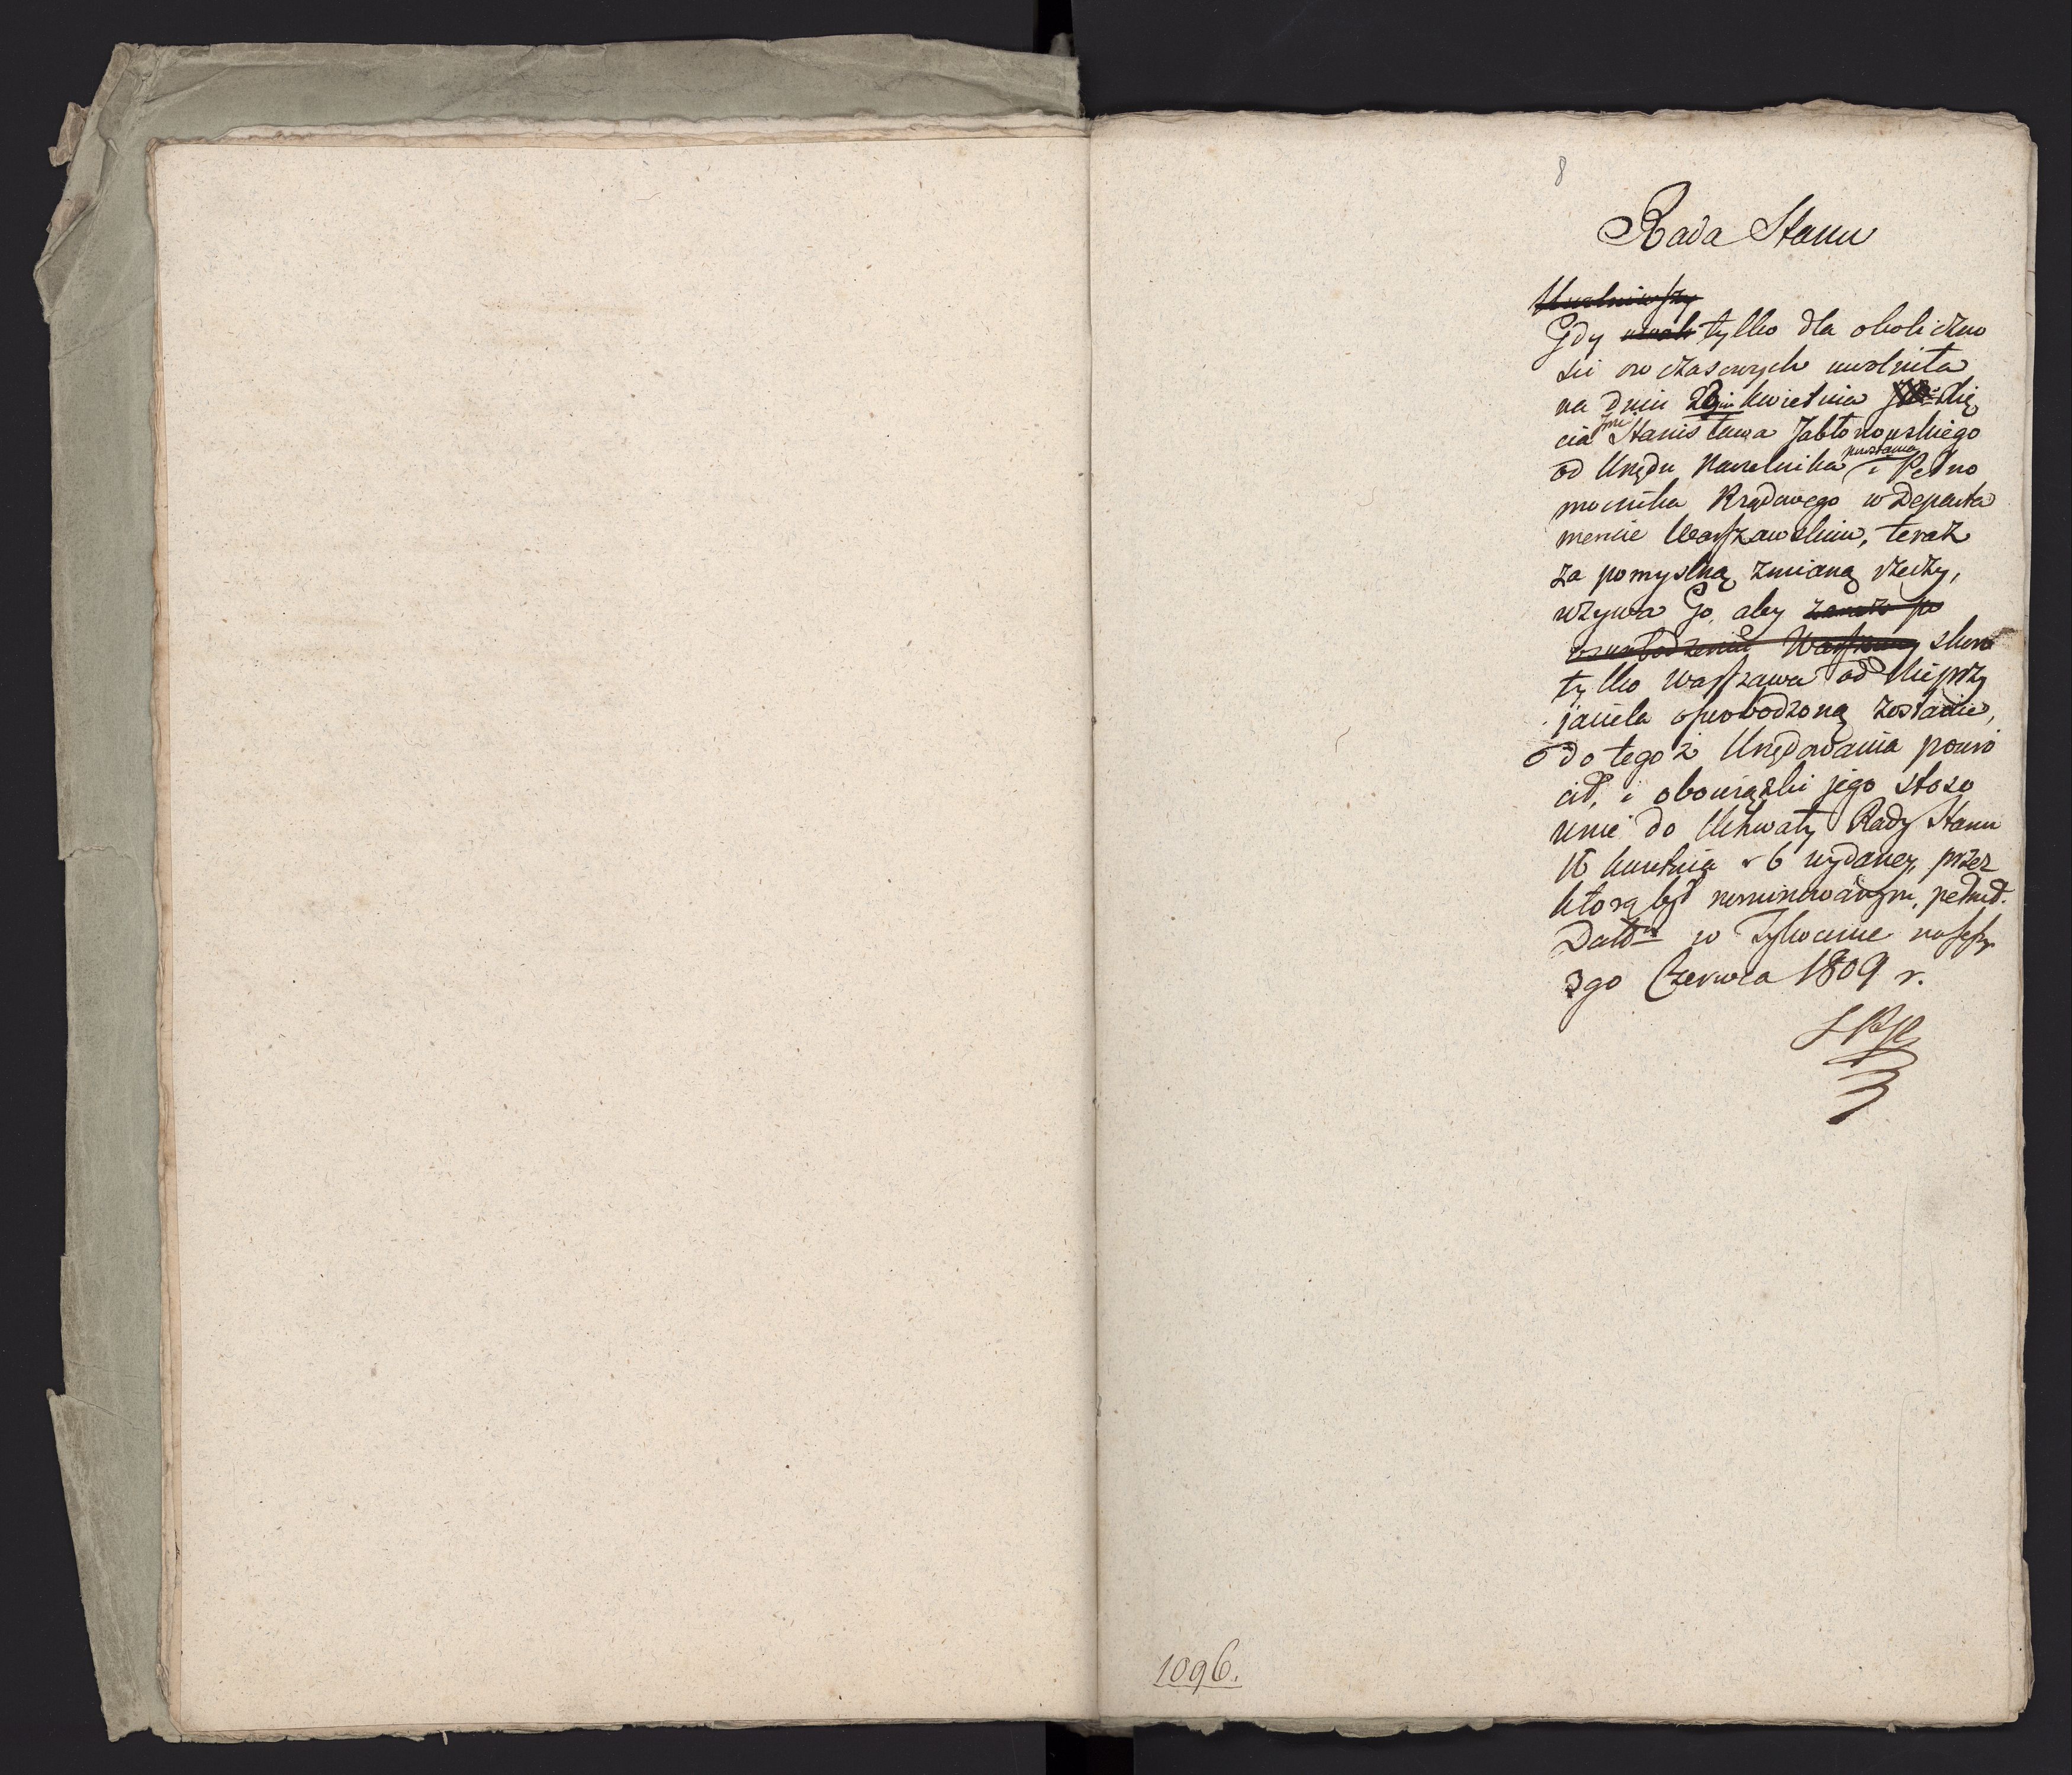 8
Rada Stanu
Uwolniwszy
Gdy tylko dla okoliczno
ści ow czasowych uwolniła
na dniu kwietnia Xię
cia Jmci Stanisława Jabłonowskiego
od Urzędu Naczelnika powstania i Pełno
mocnika Rządowego w Departa
mencie Warszawskim, teraz
za pomyslną zmianą rzeczy,
wzywa Go, aby zaraz po
oswobodzeniu Warszawy skoro
tylko Warszawa od Nieprzy
jaciela oswobodzoną zostanie,
do tegoż Urzędowania powró
cił, i obowiązki jego stoso
wnie do Uchwały Rady Stanu
16 kwietnia r b wydaney, przez
którą był nominowanym, pełnił.
Datt w Tykocinie na sessyi
3go Czerwca 1809 r.
1096.